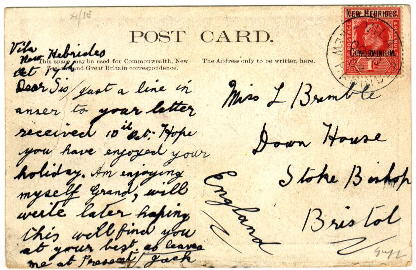 POST CARD.
This space may be used for Commonwealth, New
Zealand and Great Britain correspondence.
The Address only to be written here.
NEW HEBRIDES.
CONDOMINIUM.
1D
Vila
New Hebrides
Oct 17th
Dear Sis, Just a line in
anser to your letter
received 10th Oct. Hope
you have enjoyed your
holiday. Am enjoying
myself Grand, will
write later hoping
this will find you
at your best, as leaves
me at Present, Jack
Miss L Brimble
Down House
Stoke Bishop
Bristol
England